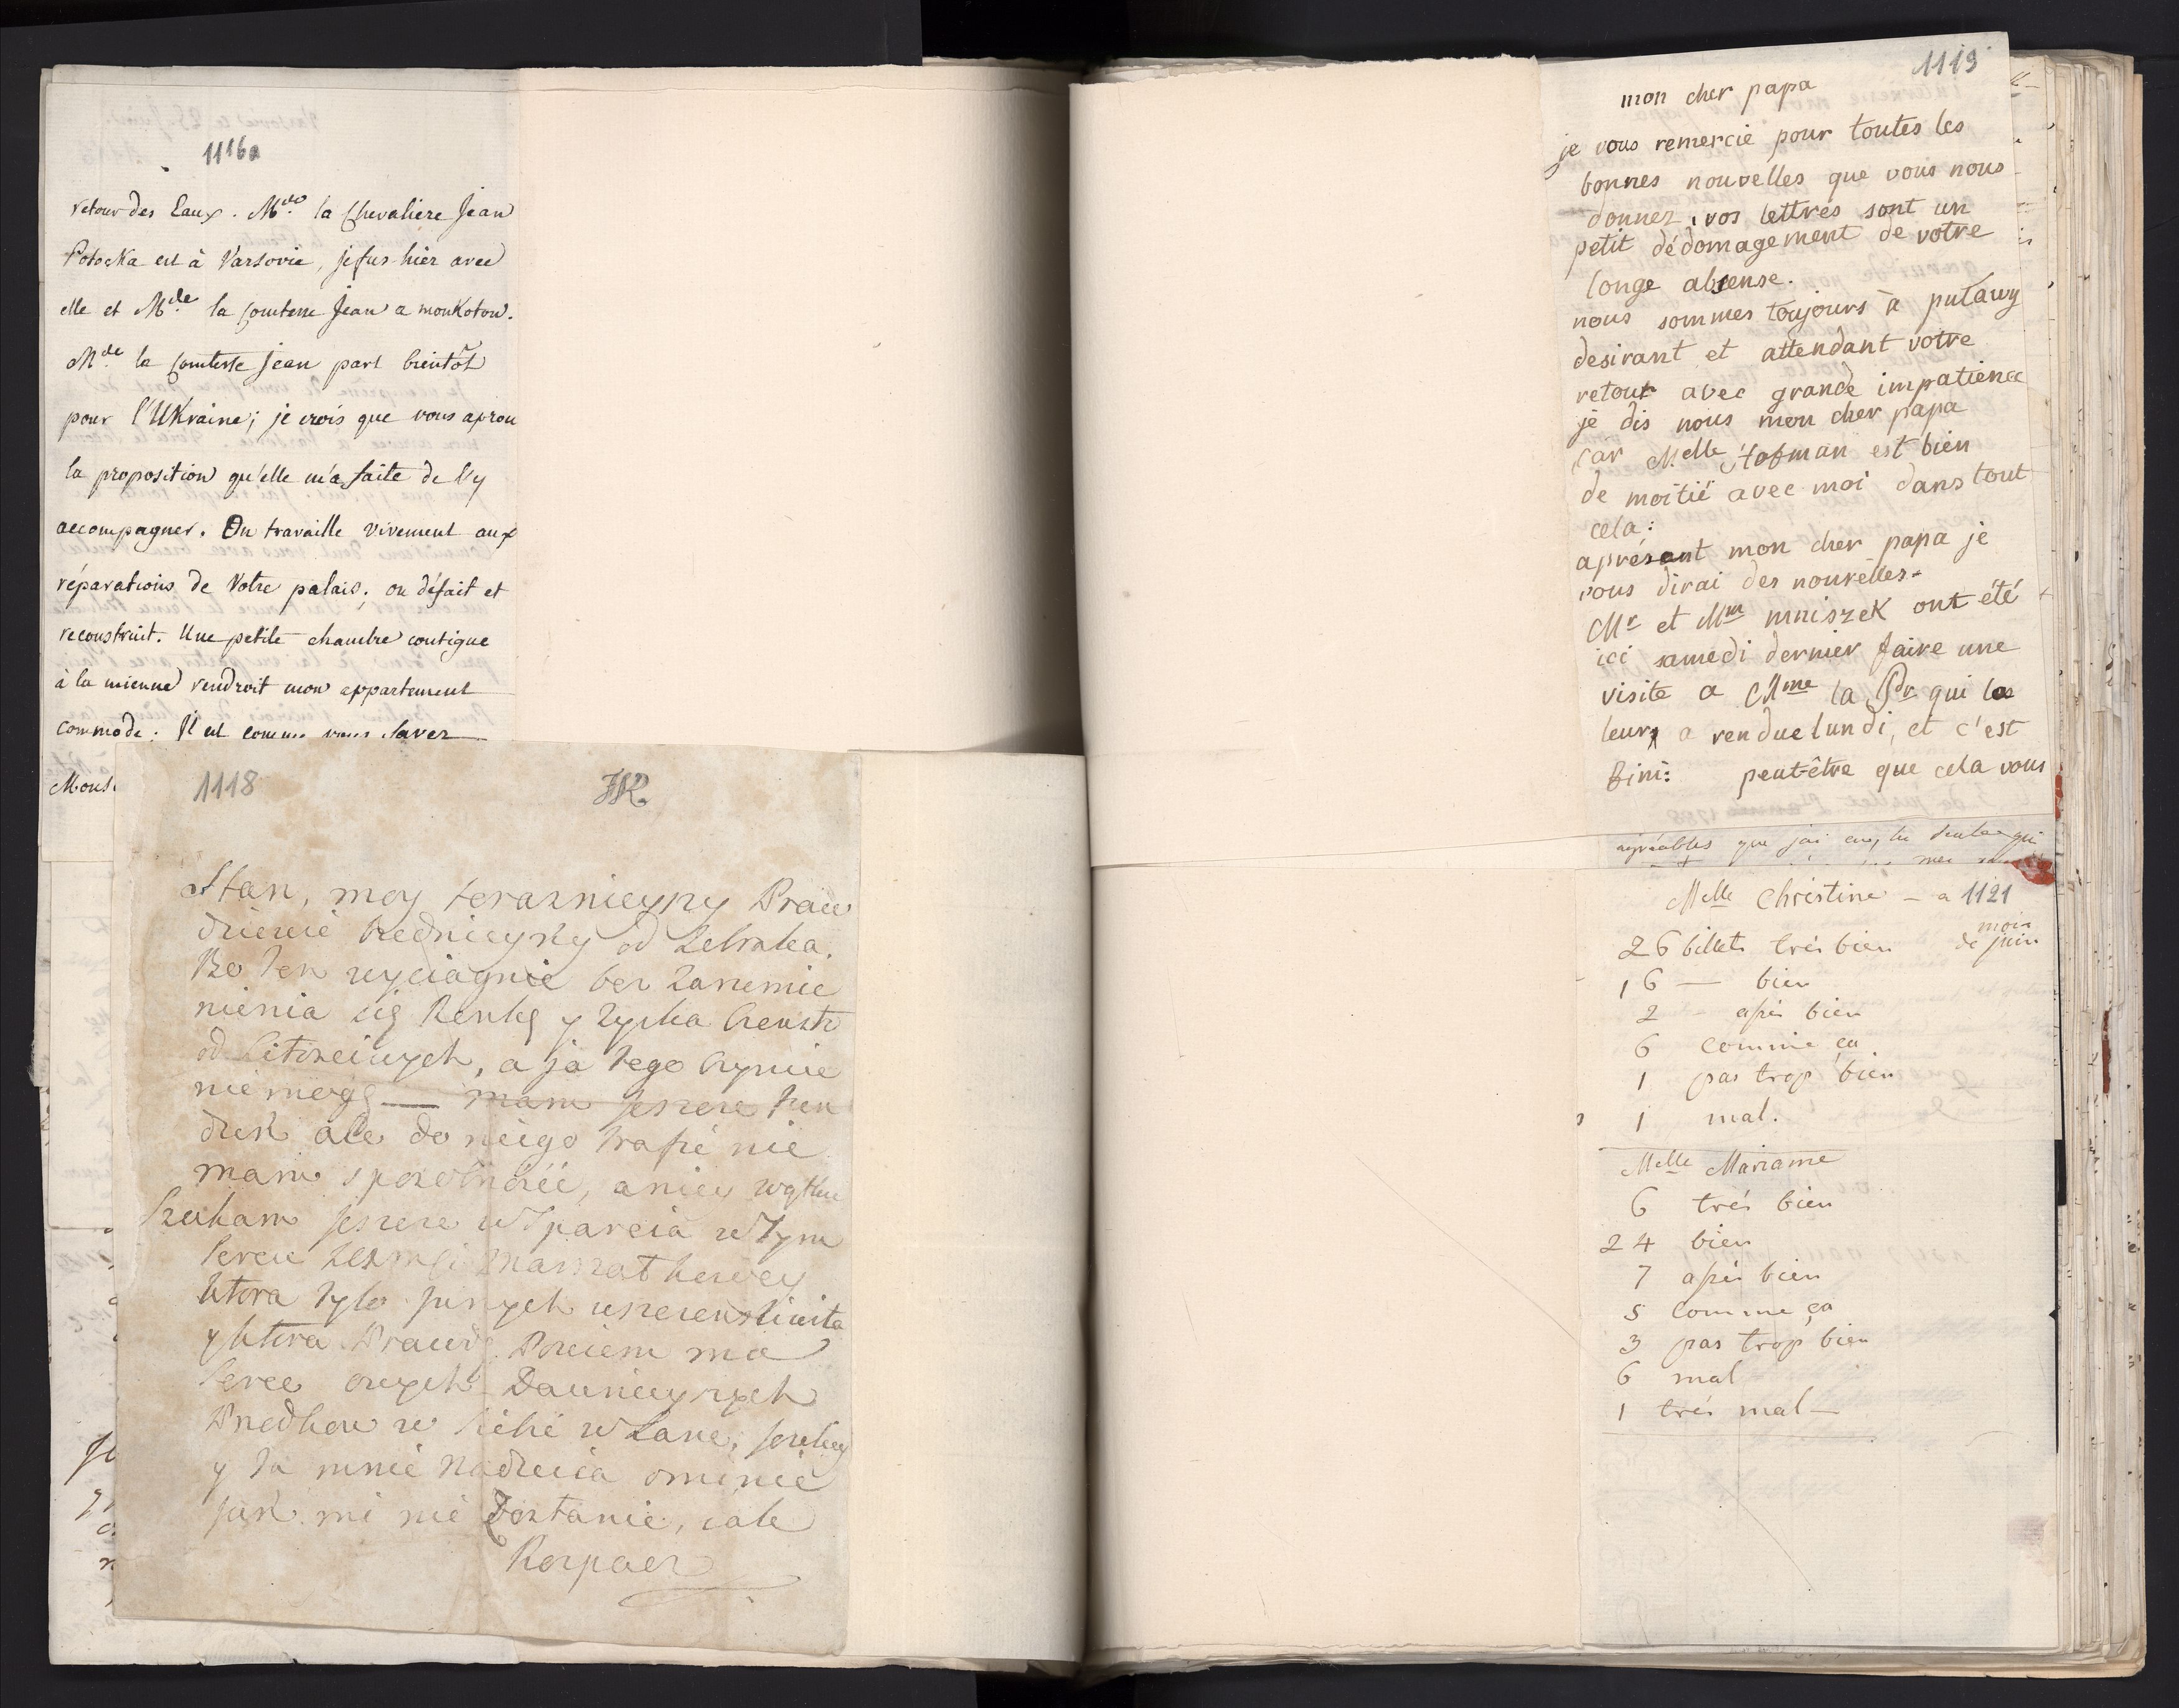 1116a
retour des Eaux. Mde la Chevaliere Jean
Potocka est à Varsovie, je fus hier avec
elle et Mde la Comtesse Jean a monkotow.
Mde la Comtesse Jean part bientôt
pour l'UKraine; je crois que vous aprou
la proposition qu'elle m'a faite de l'y
accompagner. On travaille vivement aux
réparations de Votre palais; on défait et
reconstruit. Une petite chambre contigue
à la mienne rendroit mon appartement
commode. Il est comme vous savez
Mons
1118
Stan, moy teraznieyszy Praw
dziwie biednieyszy od Zebraka.
Bo ten wyciągnie bez
nienia się Renkę y
od Litosciwych, a ja tego czynic
nie mogę — mam jeszcze
ale do niego trafić nie
mam sposobności, aniey
Szukam jeszcze wsparcia w tym
Sercu
ktora tylo jnszych uszczensliwiła
y ktora Prawdę Powiem ma
Serce owych Dawnieyszych
y ta mnie Nadzieia ominie
Jusz mi nie Zostanie, iale
Rozpacz
1119
mon cher papa
je vous remercie pour toutes les
bonnes nouvelles que vous nous
donnez, vos lettres sont un
petit dédomagement de votre
longe absense.
nous sommes toujours à puławy
desirant et attendant votre
retour avec grande impatience
je dis nous mon cher papa
car Melle Hofman est bien
de moitié avec moi dans tout
cela:
aprésent mon cher papa je
vous dirai des nouvelles.
Mr et Mm mniszeK ont été
ici samedi dernier faire une
visite a Mme la Pr qui la
leur a rendue lundi, et c'est
fini: peut-être que cela vous
agréables que j'ai
Melle Christine - a 1121
mois
26 billets très bien de juin
16 — bien
2 - assés bien
6 comme ça
1 pas trop bien
1 mal.
Melle Marianne
6 très bien
24 bien
7 assés bien
5 comme ça
3 pas trop bien
6 mal
1 très mal—